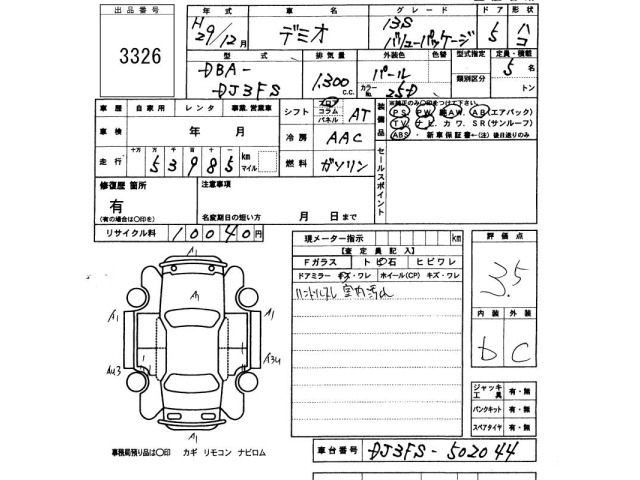 出品番号
3326
年式 車名 グレード ドア 形状
H29/12月 デミオ 13S バリューパッケージ 5 ハコ
型式 排気量 外装色 色替 型式指定 定員・積載
DBA-DJ3FS 1,300c.c. パール カラーNo. 25D 類別区分 5名 トン
車歴 自家用 レンタ 事業.営業車
シフト フロア コラム パネル AT
装備品 ※純正のみ○印をつけて下さい。
PS PW AW. AB(エアバック)
TV ナビ カワ. SR(サンルーフ)
ABS ・新車保証書←(注)後日送りのみ
車検 年 月
冷房 AAC
走行 十万 万 千 百 十 一 53985 km マイル
燃料 ガソリン
セールスポイント
修復歴 箇所
有
(有の場合は○印を)
注意事項
名変期日の短い方 月 日まで
リサイクル料 10040円
現メーター指示 km
【査定員記入】
Fガラス トビ石 ヒビワレ
ドアミラー キズ・ワレ ホイール(CP) キズ・ワレ
ハンドルスレ 室内汚れ
評価点
3.5
内装 外装
b C
A1
A1
A1 A1
AU3 A3U
ジャッキ 工具 有・無
パンクキット 有・無
スペアタイヤ 有・無
事務局預り品は○印 カギ リモコン ナビロム
車台番号 DJ3FS-502044